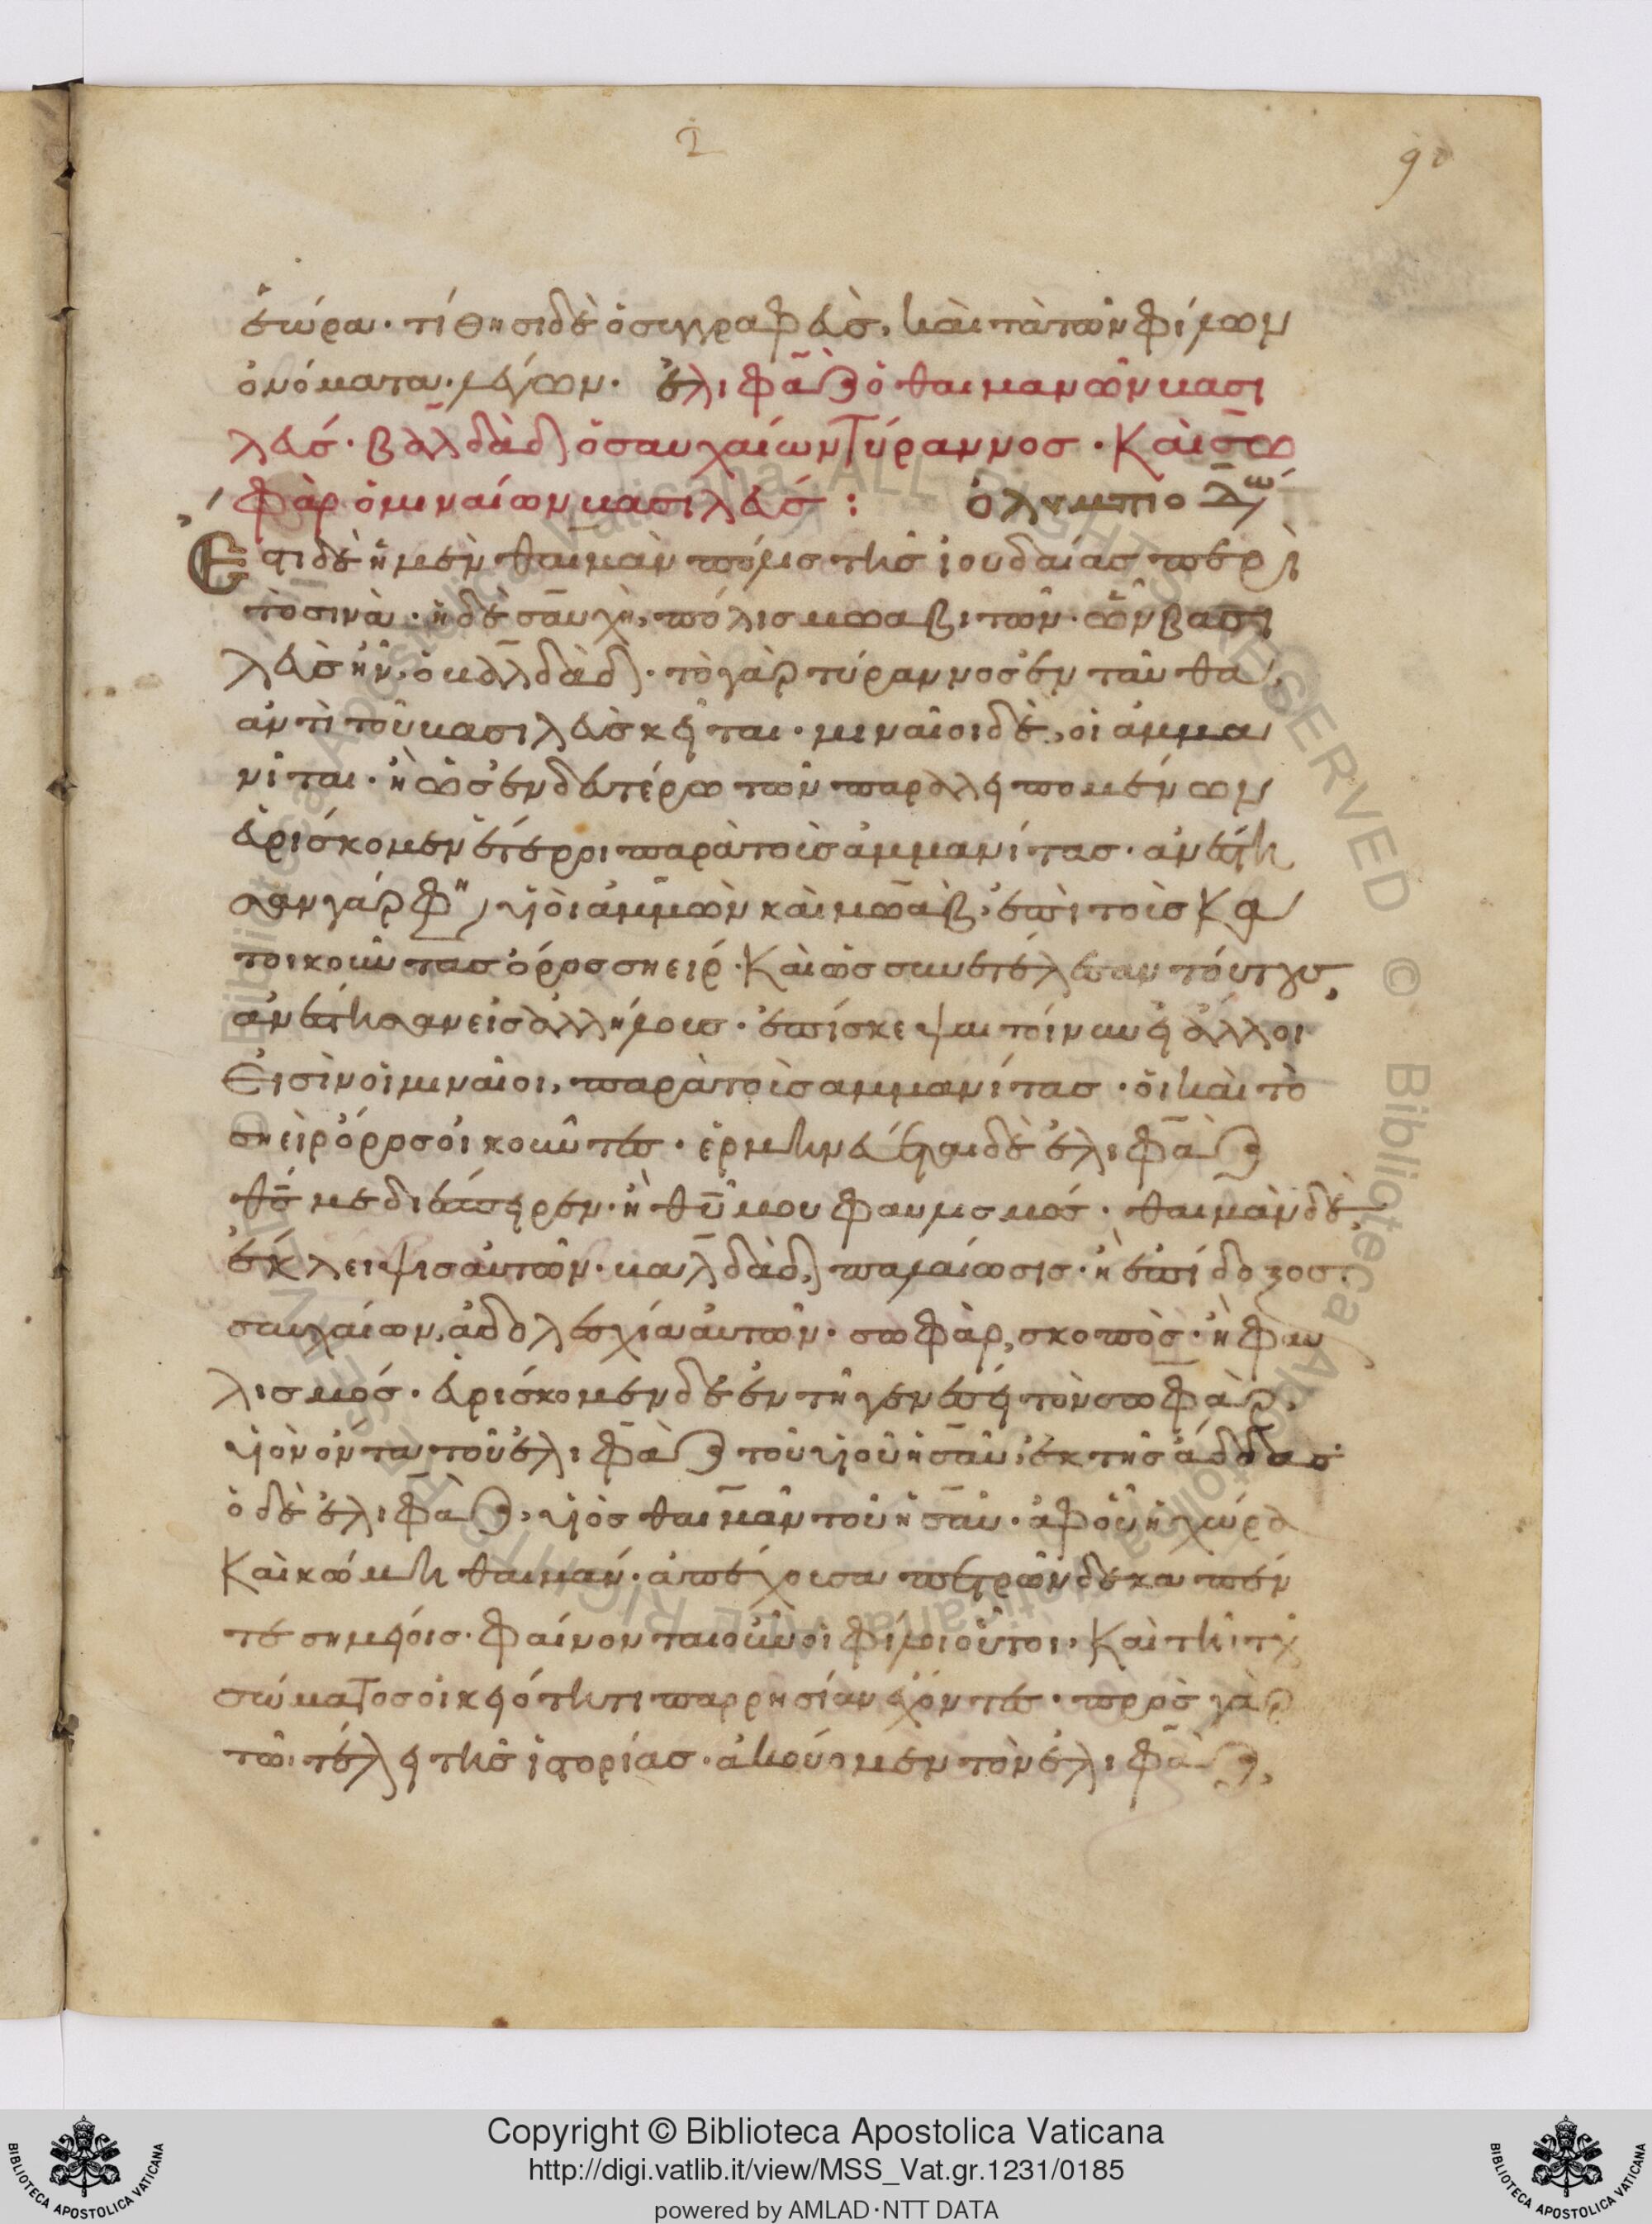 2
90
ἑώρα· τίθησι δὲ ὁ συγγραφεὺς, καὶ τὰ τῶν φίλων
ὀνόματα λέγων· ἐλιφὰζ ὁ θαιμανῶν βασι
λεύς· βαλδὰδ ὁ σαυχαίων τύραννος· Καὶ σω
φὰρ ὁ μιναίων βασιλεύς: ὀλυμπιοδώ
Ἔστι δὲ ἡ μὲν θαιμὰν πόλις τῆς ἰουδαίας περὶ
τὸ σινὰ· ἡ δὲ σαυχὴ, πόλις μωαβιτῶν· ὧν βασι
λεὺς ἦν, ὁ βαλδὰδ· τὸ γὰρ τύραννος ἐνταῦθα
ἀντὶ τοῦ βασιλεὺς κεῖται· μιναῖοι δὲ, οἱ ἀμμα
νῖται· ἢ ὡς ἐν δευτέρω τῶν παραλειπομένων
εὑρίσκομεν ἕτεροι παρὰ τοὺς ἀμμανίτας· ἀνέστη
σαν γάρ φη, υἱοὶ ἀμμὼν καὶ μωὰβ, ἐπὶ τοὺς κα
τοικοῦντας ὄρος σηείρ· Καὶ ὡς συνετέλεσαν τούτους,
ἀνέστησαν εἰς ἀλλήλους· ἐπίσκεψαι τοίνυν εἰ ἄλλοι
Εἰσὶν οἱ μιναῖοι, παρὰ τοὺς αμμανίτας· οἱ καὶ τὸ
σηεὶρ ὄρος οἰκοῦντες· ἑρμηνεύεται δὲ ἐλιφὰζ
θς με διέσπειρεν· ἢ θυ μου φαυλισμός· θαιμὰν δὲ,
ἔκλειψις αὐτῶν· βαλδὰδ, παλαίωσις· ἢ ἐπίδοξος·
σαυχαίων, ἀδολεσχία αὐτῶν· σωφὰρ, σκοπὸς· ἢ φαυ
λισμός· εὑρίσκομεν δὲ ἐν τῆ γενέσει τὸν σωφὰρ,
υἱὸν ὄντα τοῦ ἐλιφὰζ τοῦ υἱοῦ ἠσαῦ, ἐκ τῆς ἄδδας·
ὁ δὲ ἐλιφὰζ, υἱὸς θαιμὰν τοῦ ἠσαῦ· ἀφ οὗ ἡ χώρα
Καὶ κώμη θαιμαν· ἀπέχουσα πετρῶν δεκαπέν
τε σημείοις· φαίνονται οὖν οἱ φίλοι οὗτοι, Καὶ τὴν τοῦ
σώματος οἰκειότητι παρρησίαν ἔχοντες· πρὸς γὰρ
τῶ τέλει τῆς ἱστορίας· ἀκούομεν τὸν ἐλιφὰζ,
BIBLIOTECA APOSTOLICA VATICANA
Copyright © Biblioteca Apostolica Vaticana
http://digi.vatlib.it/view/MSS_Vat.gr.1231/0185
powered by AMLAD·NTT DATA
BIBLIOTECA APOSTOLICA VATICANA